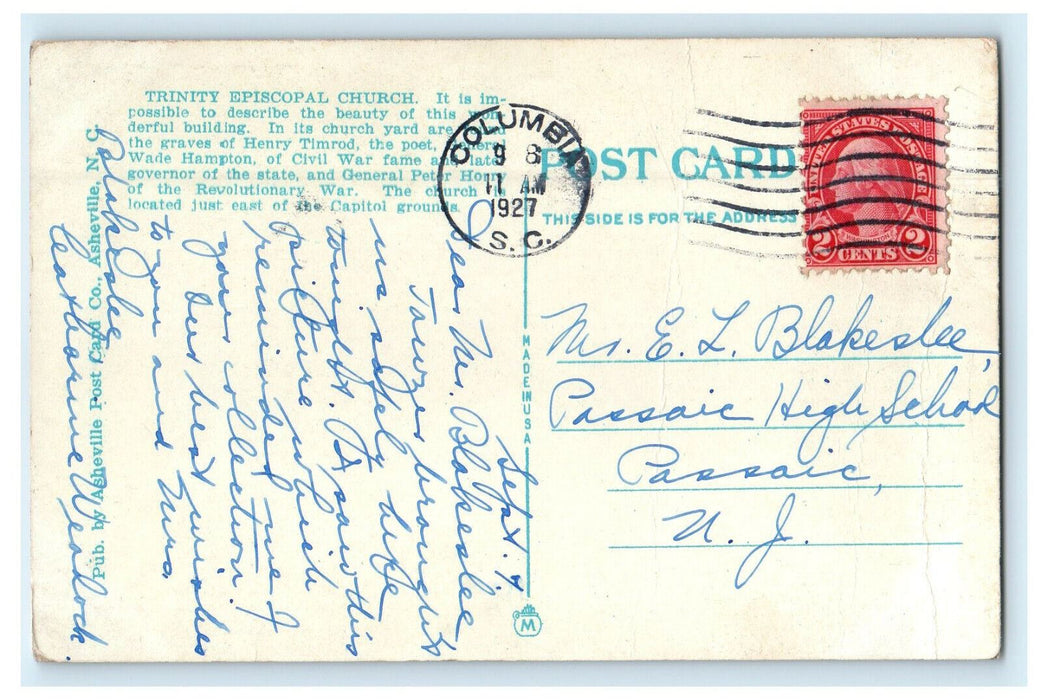 TRINITY EPISCOPAL CHURCH. It is im-
possible to describe the beauty of this won-
derful building. In its church yard are
the graves of Henry Timrod, the poet,
Wade Hampton, of Civil War fame and late
governor of the state, and General Peter Horry
of the Revolutionary War. The church is
located just east of the Capitol grounds.
COLUMBIA
9 8
11 AM
1927
S. C.
POST CARD
THIS SIDE IS FOR THE ADDRESS
UNITED STATES POSTAGE
2 CENTS 2
MADE IN USA
M
Pub. by Asheville Post Card Co., Asheville, N. C.
Mr. E. L. Blakeslee,
Passaic High School
Passaic,
N. J.
Sept. 7
Dear Mr. Blakeslee
Towzer brought
us safely here
tonight. I saw this
picture which
reminded me of
your collection.
Our best wishes
to you and Mrs.
Blakeslee